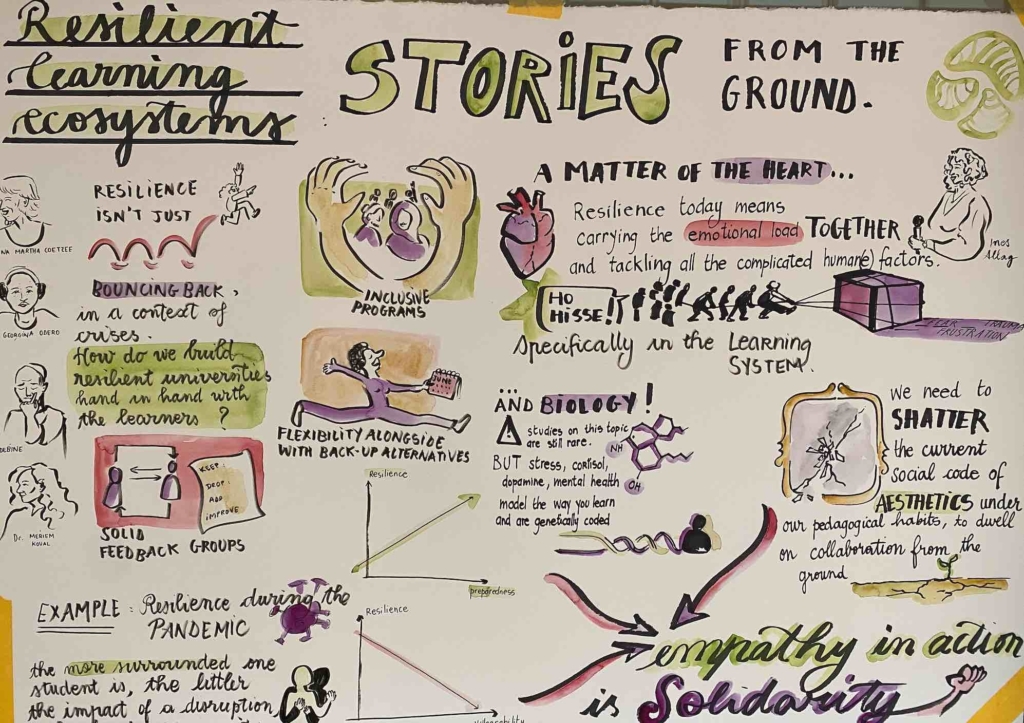 Resilient
learning
ecosystems
STORIES
FROM THE
GROUND.
RESILIENCE
ISN'T JUST
BOUNCING BACK,
in a context of
crises.
How do we build
resilient universities
hand in hand with
the learners ?
NA MARTHA COETZEE
GEORGINA ODERO
DEBINE
Dr. MERIEM
KEEP
DROP
ADD
IMPROVE
SOLID
FEEDBACK GROUPS
INCLUSIVE
PROGRAMS
JUNE
FLEXIBILITY ALONGSIDE
WITH BACK-UP ALTERNATIVES
Resilience
preparedness
EXAMPLE : Resilience during the
PANDEMIC
the more surrounded one
student is, the littler
the impact of a disruption
Resilience
vulnerability
A MATTER OF THE HEART...
Resilience today means
carrying the emotional load TOGETHER
and tackling all the complicated human(e) factors.
Ines
HO
HISSE!!
FEAR TRAUMA
FRUSTRATION
Specifically in the Learning
SYSTEM.
...
AND BIOLOGY!
! studies on this topic
are still rare.
BUT stress, cortisol,
dopamine, mental health
model the way you learn
and are genetically coded
NH
OH
we need to
SHATTER
the current
social code of
AESTHETICS under
our pedagogical habits, to dwell
on collaboration from the
ground
empathy in action
is Solidarity